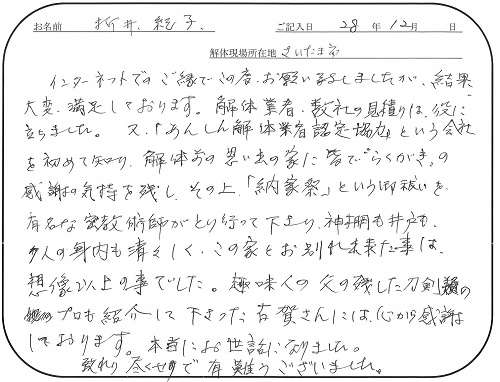 お名前 折井 純子 ご記入日 28年 12月 日
解体現場所在地 さいたま市
インターネットでのご縁でこの度、お願い致しましたが、結果
大変、満足しております。解体業者、数社の見積りは、役に
立ちました。又、「あんしん解体業者認定協力」という会社
を初めて知り、解体前の思い出の家に皆で"らくがき"の
感謝の気持を残し、その上、「納家祭」という御祓いを、
有名な密教術師がとり行って下さり、神棚も井戸も、
多人の身内も清々しく、この家とお別れ出来た事は、
想像以上の事でした。趣味人の父の残した刀剣類の
プロも紹介して下さった古賀さんには、心から感謝
しております。本当にお世話になりました。
致れり尽くせりで有難うございました。